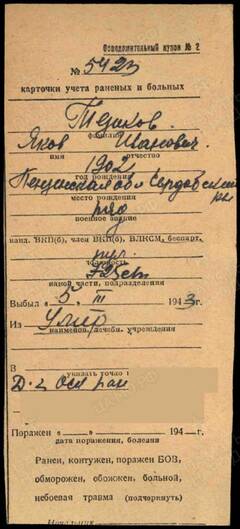 Осведомительный купон № 2
№ 5423
карточки учета раненых и больных
Тешков
фамилия
Яков Иванович.
имя отчество
1902
год рождения
Пензинская обл Сердобский
место рождения
ряд
военное звание
канд. ВКП(б), член ВКП(б), ВЛКСМ, беспарт.
должность
наимен. части, подразделения
Выбыл „5" III 1943г.
Из Умер
наименов. лечебн. учреждения
В
указать точно
Поражен „ " 194 г.
дата поражения, болезни
Ранен, контужен, поражен БОВ,
обморожен, обожжен, больной,
небоевая травма (подчеркнуть)
Начальник